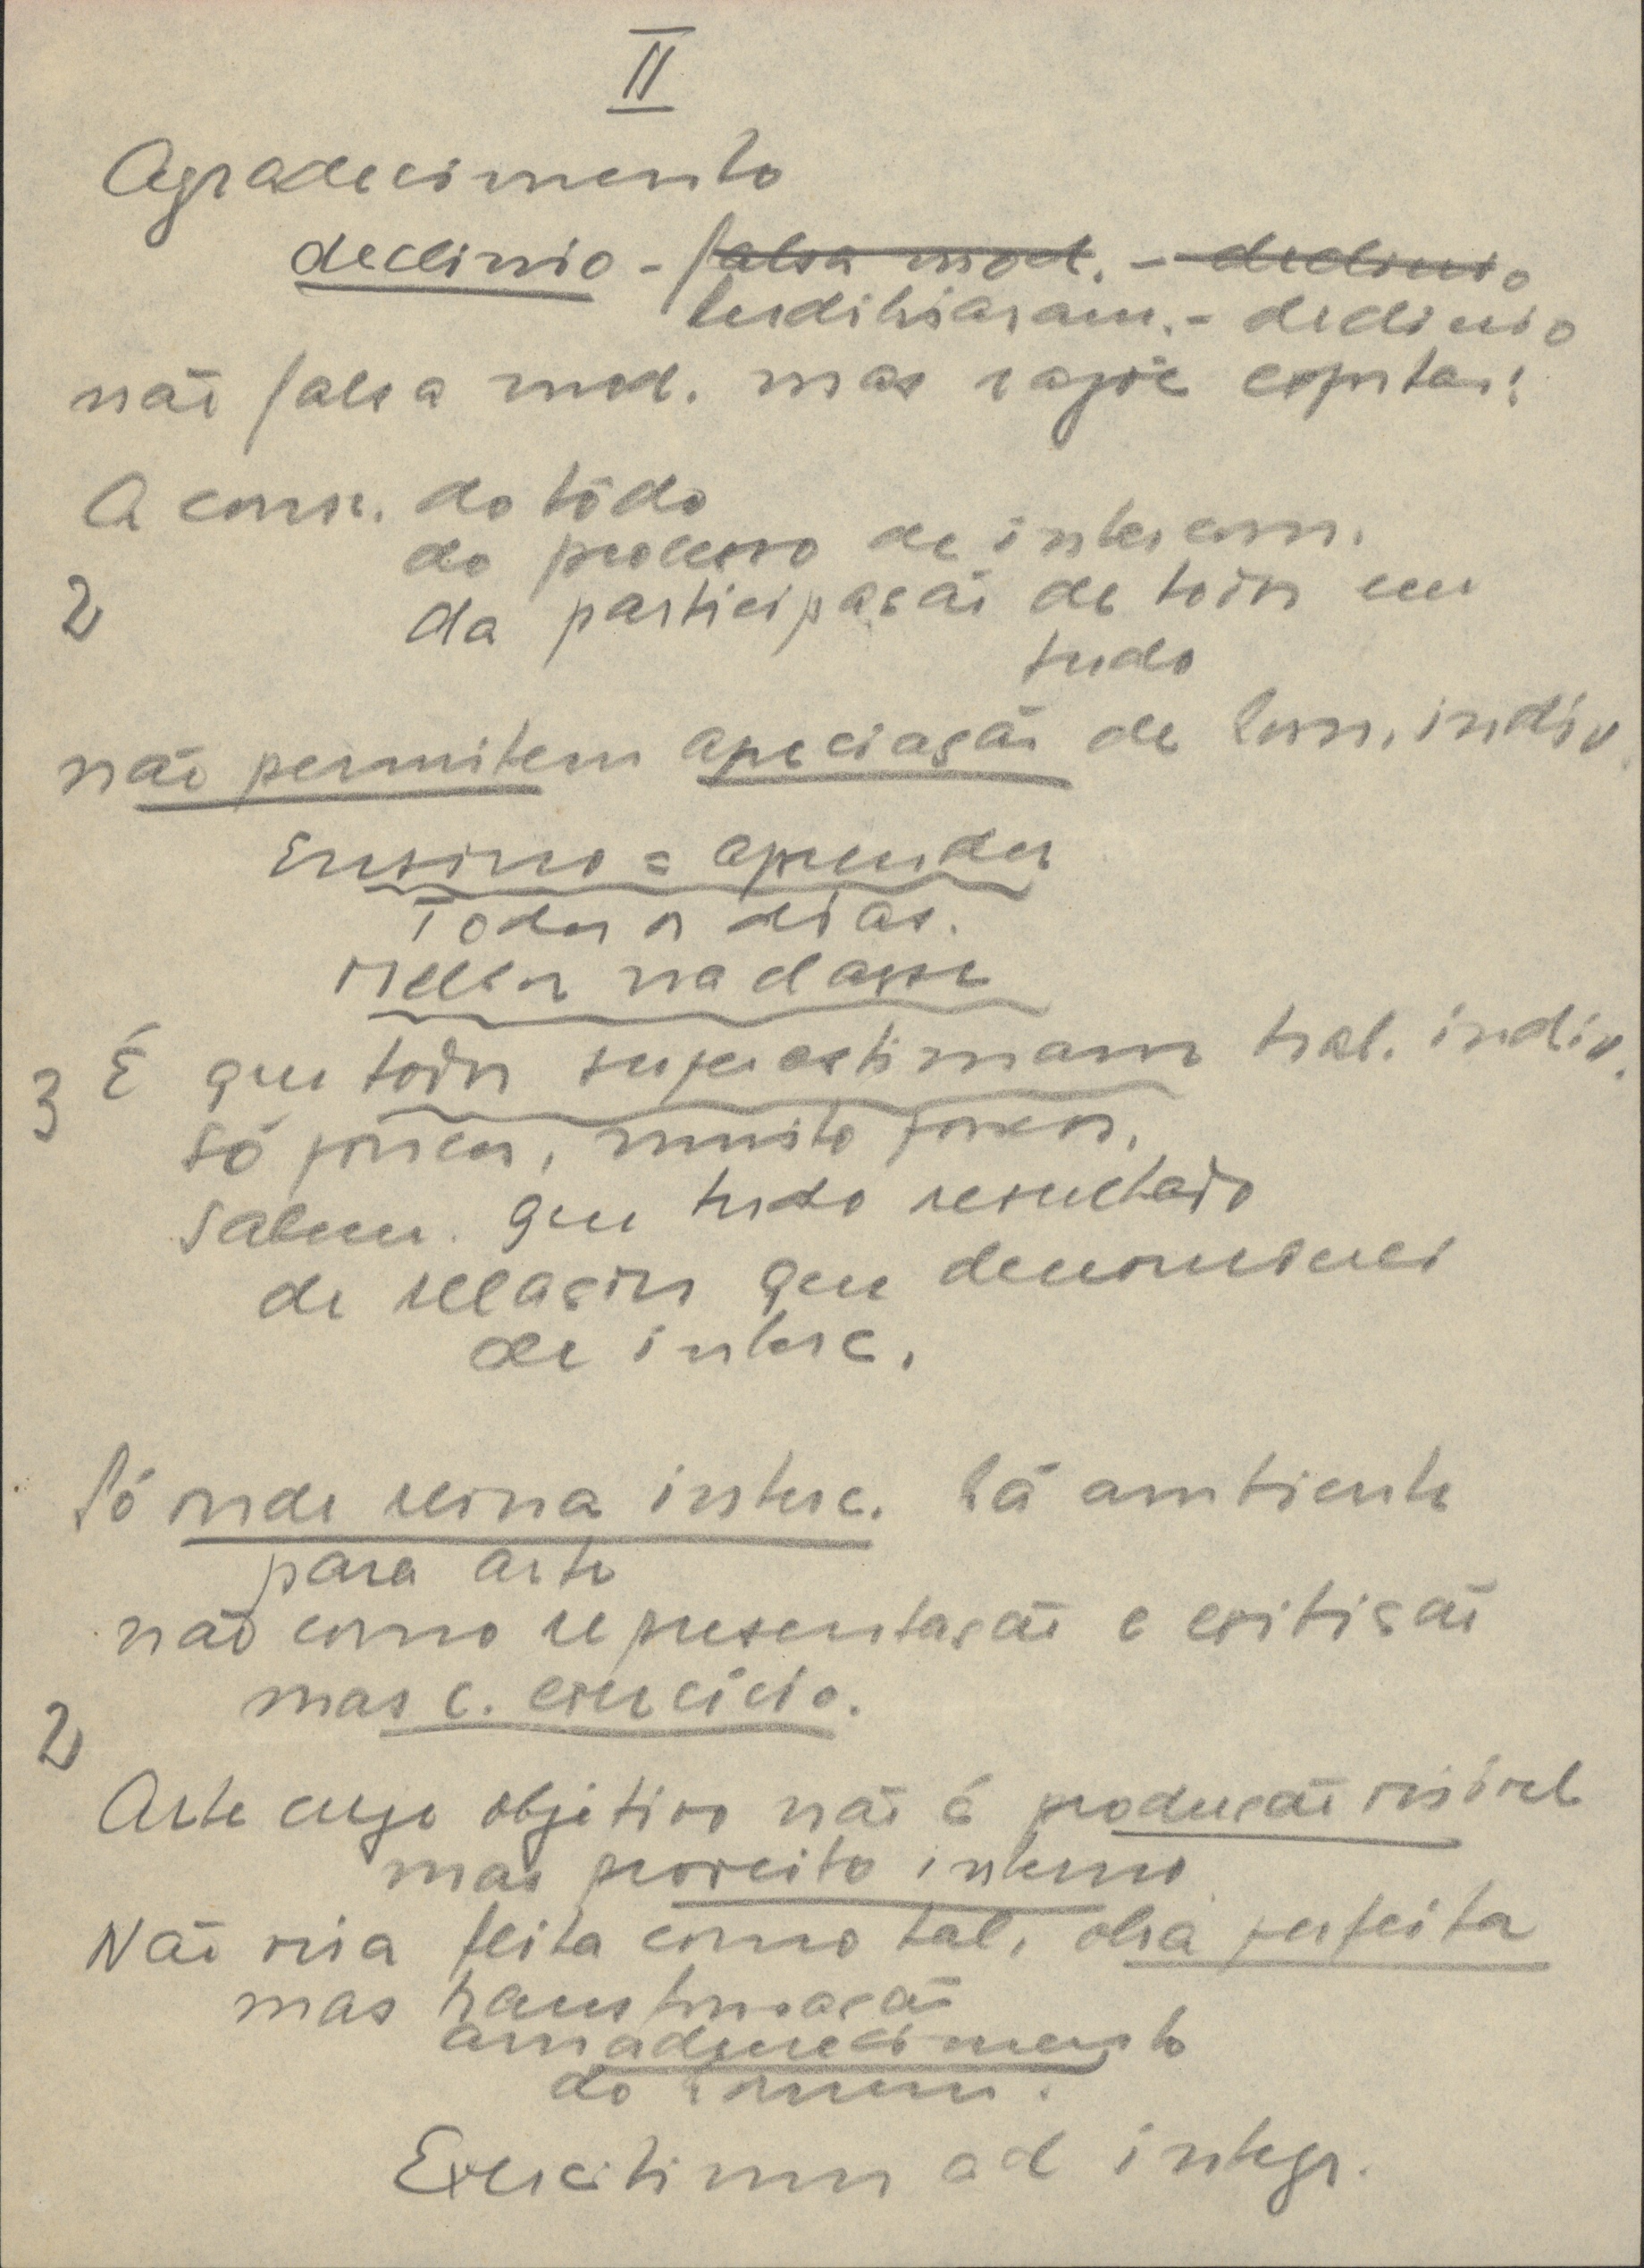 II
Agradecimento
declinio - falsa mod. - declinio
- declinio
não falsa mod. mas razões
A cons. do tôdo
do processo de intercom.
2
da participação de todos em
tudo
não permitem apreciação de hom. indiv.
Ensino = aprender
Todos os dias.
Melhor na classe
3
É que todos superestimam trab. indiv.
só poucos, muito poucos,
sabem que tudo resultado
de relações que denominei
de interc.
Só onde reina interc. há ambiente
para arte
não como representação e
mas c. exercício.
2
Arte cujo objetivo não é produção visível
mas proveito interno
Não visa feita como tal, obra perfeita
mas transformação
amadurecimento
do homem.
Exercitium ad integr.